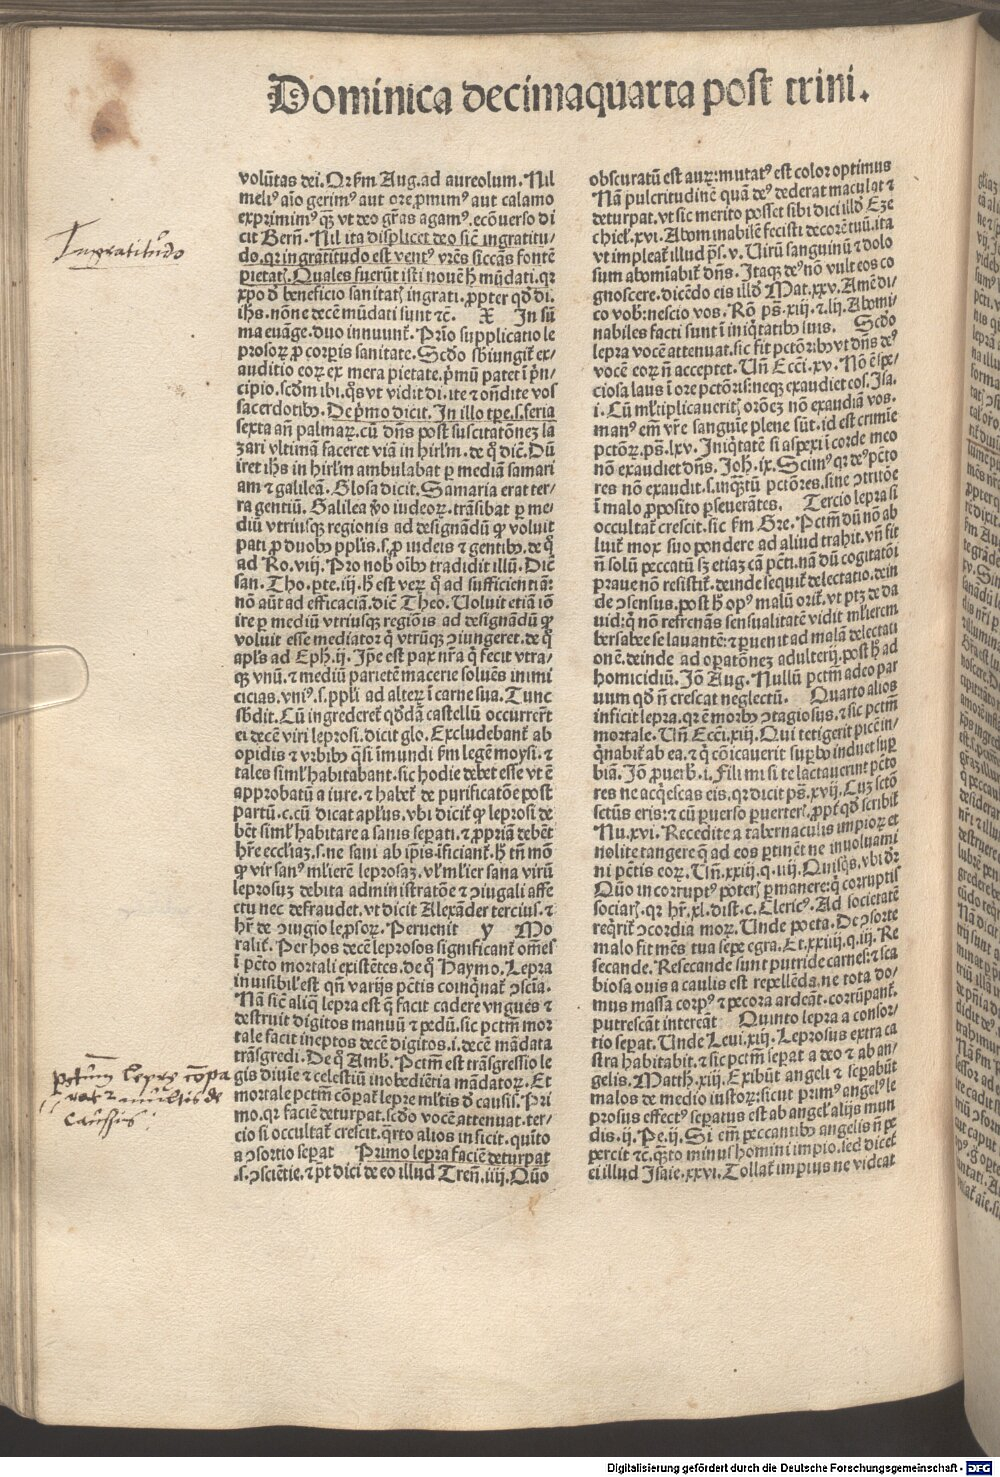 Dominica decimaquarta post trini.
volūtas dei. Qr ẜm Aug. ad aureolum. Nil
meliꝰ aīo gerimꝰ aut ore ꝓmimꝰ aut calamo
exprimimꝰ qꝫ vt deo grās agamꝰ. ecōuerso di
cit Bern̄. Nil ita displicet deo sic̄ ingratitu/
do. qr ingratitudo est ventꝰ vrēs siccās fontē
pietatꝭ. Quales fuerūt isti nouē hͥ mūdati. qr
xp̄o ð beneficio sanitatꝭ ingrati. ꝓpter qð di.
ih̄s. nōne decē mūdati sunt ⁊c. X In sū
ma euāge. duo innuunt̄. Prīo supplicatio le
prosoꝝ ꝓ corpīs sanitate. Scd̄o sb̄iungit̄ ex/
auditio eoꝝ ex mera pietate. p̄mū patet ī prī/
cipio. scd̄m ibi. q̄s vt vidit di. ite ⁊ on̄dite vos
sacerdotibꝰ. De p̄mo dicit. In illo tp̄e. s. feria
sexta an̄ palmaꝝ. cū dn̄s post suscitatōneꝫ la
zari vltimā faceret viā in hirlm̄. de q̊ dic̄. Dū
iret ih̄s in hirlm̄ ambulabat ꝑ mediā samari
am ⁊ galileā. Glosa dicit. Samaria erat ter/
ra gentiū. Galilea ꝟo iudeoꝝ. trāsibat ꝑ me/
diū vtriusqꝫ regionis ad designādū ꝙ voluit
pati ꝓ duobꝰ pplīs. s. ꝓ iudeis ⁊ gentibꝰ. de q̊
ad Ro. viij. Pro nob̄ oībꝰ tradidit illū. Dic̄
san. Tho. ꝑte. iij. hͥ est veꝝ q̊ ad sufficientiā:
nō aūt ad efficaciā. dic̄ Theo. Uoluit etiā iō
ire ꝑ mediū vtriusqꝫ regiōis ad designādū ꝙ
voluit esse mediatoꝛ q̇ vtrūqꝫ ꝯiungeret. de q̊
apl̄s ad Eph. ij. Ip̄e est pax nr̄a q̇ fecit vtra/
qꝫ vnū. ⁊ mediū parietē macerie soluēs inimi
cicias. vniꝰ. s. ppl̄i ad alteꝝ ī carne sua. Tunc
sb̄dit. Cū ingrederet̄ qð dā castellū occurrer̄t
ei decē viri leprosi. dicit glo. Excludebant̄ ab
opidis ⁊ vrbibꝰ q̄si īmundi ẜm legē moysi. ⁊
tales siml̄ habitabant. sic hodie debet esse vt ē
approbatū a iure. ⁊ habet̄ de purificatōe post
partū. c. cū dicat apl̄us. vbi dicit̄ ꝙ leprosi de
bēt siml̄ habitare a sanis seꝑati. ⁊ ꝓpriā debēt
hr̄e eccl̄iaꝫ. s. ne sani ab ip̄is īficiant̄. hͥ tn̄ mō
ꝙ vir sanꝰ ml̄ierē leprosaꝫ. vl̄ ml̄ier sana virū
leprosuꝫ debita administratōe ⁊ ꝯiugali affe
ctu nec defraudet. vt dicit Alexāder tercius. ⁊
hr̄ de ꝯiugio lep̄soꝝ. Peruenit y Mo
ralit̄. Per hos decē leprosos significant̄ om̄es
ī pc̄to mortali existētes. de q̊ Haymo. Lepra
inuisibil̄ est qn̄ varijs pc̄tis coinq̇nat̄ ꝯsciā.
Nā sic̄ aliq̄ lepra est q̄ facit cadere vngues ⁊
destruit digitos manuū ⁊ pedū. sic pctm̄ mor
tale facit ineptos decē digitos. i. decē mādata
trāsgredi. De q̊ Amb. Pctm̄ est trāsgressio le
gis diuīe ⁊ celestiū inobediētia mādatoꝝ. Et
mortale pctm̄ cōꝑat̄ lepre ml̄tis ð causis. Pri
mo. qr faciē deturpat. scd̄o vocē attenuat. ter/
cio si occultat̄ crescit. q̄rto alios inficit. quīto
a ꝯsortio seꝑat Primo lepra faciē deturpat
s. ꝯsciētie. ⁊ pt̄ dici de eo illud Tren̄. iiij. Quō
obscuratū est auꝝ: mutatꝰ est color optimus
Nā pulcritudinē quā deꝰ dederat maculat ⁊
deturpat. vt sic merito posset sibi dici illð Eze
chiel̄. xvi. Abominabilē fecisti decorē tuū. ita
vt impleat̄ illud ps̄. v. Uirū sanguinū ⁊ dolo
sum abomīabit̄ dn̄s. Itaqꝫ deꝰ nō vult eos co
gnoscere. dicēdo eis illð Mat. xxv. Amē di/
co vob̄: nescio vos. Rō ps̄. xiij. ⁊. lij. Abomi/
nabiles facti sunt ī iniq̇tatibꝰ suis. Scd̄o
lepra vocē attenuat. sic fit pctōribꝰ vt dn̄s deꝰ
vocē eoꝝ n̄ acceptet. Un̄ Ecc̄i. xv. Nō ē spe/
ciosa laus ī ore pctōris: neqꝫ exaudiet eos. Isa.
i. Cū ml̄tiplicaueritꝭ orōeꝫ nō exaudiā vos.
manꝰ em̄ vr̄e sanguīe plene sūt. id est crimīe
pctōꝝ. ps̄. lxv. Iniq̇tatē si aspexi ī corde meo
nō exaudiet dn̄s. Joh̄. ix. Scimꝰ qr deꝰ pctō
res nō exaudit. s. inq̄ꝫtū pctōres. sine ꝯtritōe
ī malo ꝓposito ꝑseuerātes. Tercio lepra si
occultat̄ crescit. sic ẜm Gre. Pctm̄ dū nō ab
luit̄ mox suo pondere ad aliud trahit. vn̄ fit
n̄ solū peccatū sꝫ etiaꝫ cā pc̄ti. nā dū cogitatōi
praue nō resistit̄. deinde sequit̄ delectatio. dein
de ꝯsensus. post hͥ opꝰ malū orit̄. vt ptꝫ de da
uid: q̇ nō refrenās sensualitatē vidit ml̄ierem
bersabee se lauantē: ⁊ ꝑuenit ad malā delectati
onē. deinde ad oꝑatōneꝫ adulterij. post hͥ ad
homicidiū. Jō Aug. Nullū pctm̄ adeo par
uum qð n̄ crescat neglectū. Quarto alios
inficit lepra. qr ē morbꝰ ꝯtagiosus. ⁊ sic pctm̄
mortale. Un̄ Ecc̄i. xiij. Qui tetigerit picē in/
q̇nabit̄ ab ea. ⁊ q̇ cōicauerit suꝑbo induet suꝑ
biā. Jō ꝓuerb̄. i. Fili mi si te lactauerint pctō
res ne acq̇escas eis. qr dicit ps̄. xvij. Cuꝫ sctō
sctūs eris: ⁊ cū ꝑuerso ꝑuerterꝭ. ꝓpt̄ qð scribit̄
Nu. xvi. Recedite a tabernaculis impioꝝ et
nolite tangere q̄ ad eos ꝑtinēt ne inuoluami
ni pc̄tis eoꝝ. Un̄. xxiij. q. iiij. Quisq̇s. vbi dr̄
Quō incorruptꝰ poterꝭ ꝑmanere: q̇ corruptis
sociarꝭ. qr hr̄. xl. dist. c. Clericꝰ. Ad societatē
req̇rit̄ ꝯcordia moꝝ. Unde poeta. De ꝯsorte
malo fit mēs tua sepe egra. Et. xxiiij. q. iij. Re
secande. Resecande sunt putride carnes: ⁊ sca
biosa ouis a caulis est repellēda. ne tota do/
mus massa corpꝰ ⁊ pecora ardeāt. corrūpant̄.
putrescāt intereāt Quinto lepra a consor/
tio seꝑat. Unde Leui. xiij. Leprosus extra ca
stra habitabit. ⁊ sic pctm̄ seꝑat a deo ⁊ ab an/
gelis. Matth. xiij. Exibūt angeli ⁊ seꝑabūt
malos de medio iustoꝝ: sicut primꝰ angelꝰ le
prosus effectꝰ seꝑatus est ab angel̄ alijs mun
dis. ij. Pe. ij. Si em̄ peccantibꝰ angelis n̄ pe
percit ⁊c. q̄ꝫto minus homini impio. sed dicet̄
ei illud Isaie. xxvi. Tollat̄ impius ne videat
Ingratitudo
Pctūm lepre cōpa
rat̄ ⁊ multis de
caussis:
Digitalisierung gefördert durch die Deutsche Forschungsgemeinschaft - DFG